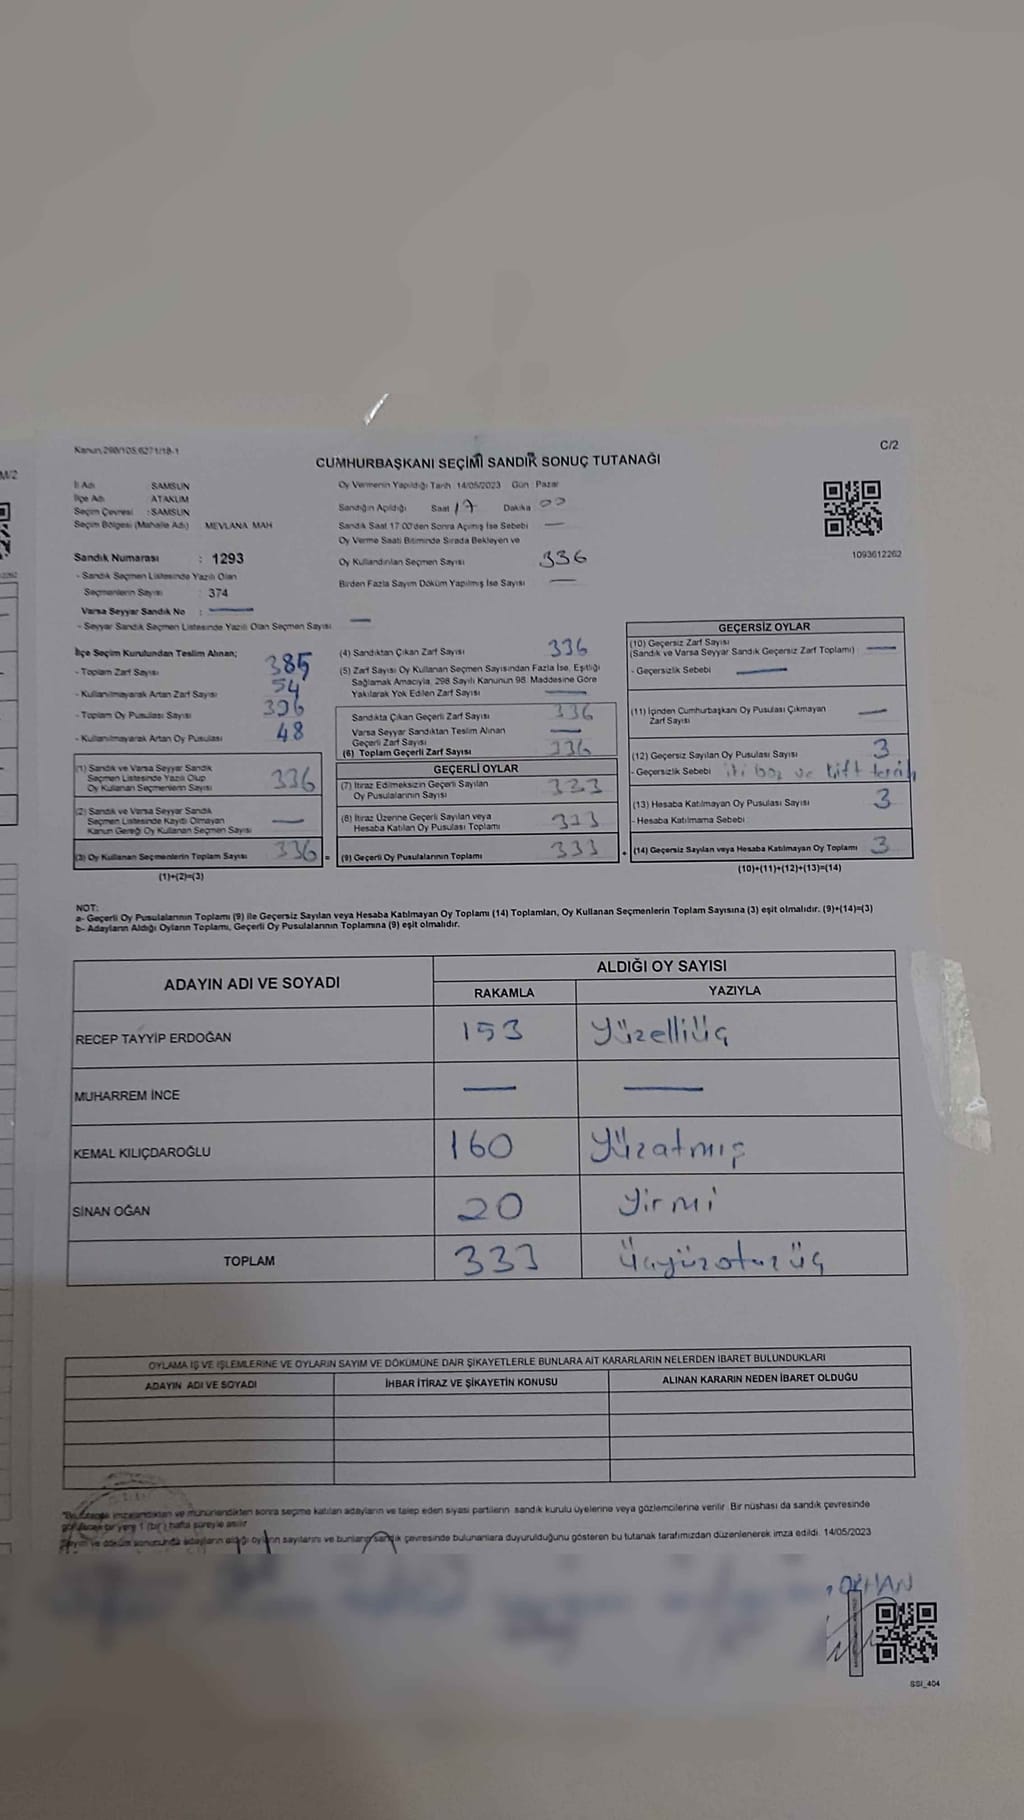 Kanun,298/105,6271/18-1
C/2
M/2
CUMHURBAŞKANI SEÇİMİ SANDIK SONUÇ TUTANAĞI
İl Adı : SAMSUN
İlçe Adı : ATAKUM
Seçim Çevresi : SAMSUN
Seçim Bölgesi (Mahalle Adı) : MEVLANA MAH
Sandık Numarası : 1293
- Sandık Seçmen Listesinde Yazılı Olan
Seçmenlerin Sayısı : 374
Varsa Seyyar Sandık No : —
- Seyyar Sandık Seçmen Listesinde Yazılı Olan Seçmen Sayısı —
Oy Vermenin Yapıldığı Tarih 14/05/2023 Gün : Pazar
Sandığın Açıldığı Saat 17 Dakika 00
Sandık Saat 17:00'den Sonra Açılmış İse Sebebi —
Oy Verme Saati Bitiminde Sırada Bekleyen ve
Oy Kullandırılan Seçmen Sayısı 336
Birden Fazla Sayım Döküm Yapılmış İse Sayısı —
1093612262
İlçe Seçim Kurulundan Teslim Alınan;
- Toplam Zarf Sayısı 385
- Kullanılmayarak Artan Zarf Sayısı 54
- Toplam Oy Pusulası Sayısı
- Kullanılmayarak Artan Oy Pusulası 48
(1) Sandık ve Varsa Seyyar Sandık
Seçmen Listesinde Yazılı Olup
Oy Kullanan Seçmenlerin Sayısı 336
(2) Sandık ve Varsa Seyyar Sandık
Seçmen Listesinde Kaydı Olmayan
Kanun Gereği Oy Kullanan Seçmen Sayısı —
(3) Oy Kullanan Seçmenlerin Toplam Sayısı 336 =
(1)+(2)=(3)
(4) Sandıktan Çıkan Zarf Sayısı 336
(5) Zarf Sayısı Oy Kullanan Seçmen Sayısından Fazla İse, Eşitliği
Sağlamak Amacıyla, 298 Sayılı Kanunun 98. Maddesine Göre
Yakılarak Yok Edilen Zarf Sayısı —
Sandıkta Çıkan Geçerli Zarf Sayısı 336
Varsa Seyyar Sandıktan Teslim Alınan
Geçerli Zarf Sayısı —
(6) Toplam Geçerli Zarf Sayısı 336
GEÇERLİ OYLAR
(7) İtiraz Edilmeksizin Geçerli Sayılan
Oy Pusulalarının Sayısı 333
(8) İtiraz Üzerine Geçerli Sayılan veya
Hesaba Katılan Oy Pusulası Toplamı 333
(9) Geçerli Oy Pusulalarının Toplamı 333 +
GEÇERSİZ OYLAR
(10) Geçersiz Zarf Sayısı
(Sandık ve Varsa Seyyar Sandık Geçersiz Zarf Toplamı) —
- Geçersizlik Sebebi —
(11) İçinden Cumhurbaşkanı Oy Pusulası Çıkmayan
Zarf Sayısı —
(12) Geçersiz Sayılan Oy Pusulası Sayısı 3
- Geçersizlik Sebebi iki boş ve
(13) Hesaba Katılmayan Oy Pusulası Sayısı 3
- Hesaba Katılmama Sebebi
(14) Geçersiz Sayılan veya Hesaba Katılmayan Oy Toplamı 3
(10)+(11)+(12)+(13)=(14)
NOT:
a- Geçerli Oy Pusulalarının Toplamı (9) ile Geçersiz Sayılan veya Hesaba Katılmayan Oy Toplamı (14) Toplamları, Oy Kullanan Seçmenlerin Toplam Sayısına (3) eşit olmalıdır. (9)+(14)=(3)
b- Adayların Aldığı Oyların Toplamı, Geçerli Oy Pusulalarının Toplamına (9) eşit olmalıdır.
ADAYIN ADI VE SOYADI
ALDIĞI OY SAYISI
RAKAMLA YAZIYLA
RECEP TAYYİP ERDOĞAN 153 Yüzelliüç
MUHARREM İNCE — —
KEMAL KILIÇDAROĞLU 160 Yüzatmış
SİNAN OĞAN 20 Yirmi
TOPLAM 333 Üçyüzotuzüç
OYLAMA İŞ VE İŞLEMLERİNE VE OYLARIN SAYIM VE DÖKÜMÜNE DAİR ŞİKAYETLERLE BUNLARA AİT KARARLARIN NELERDEN İBARET BULUNDUKLARI
ADAYIN ADI VE SOYADI İHBAR İTİRAZ VE ŞİKAYETİN KONUSU ALINAN KARARIN NEDEN İBARET OLDUĞU
*Bu tutanak imzalandıktan ve mühürlendikten sonra seçime katılan adayların ve talep eden siyasi partilerin sandık kurulu üyelerine veya gözlemcilerine verilir. Bir nüshası da sandık çevresinde
görülecek bir yere 1 (bir) hafta süreyle asılır.
Sayım ve döküm sonucunda adayların aldığı oyların sayılarını ve bunların sandık çevresinde bulunanlara duyurulduğunu gösteren bu tutanak tarafımızdan düzenlenerek imza edildi. 14/05/2023
ORHAN
SSI_404